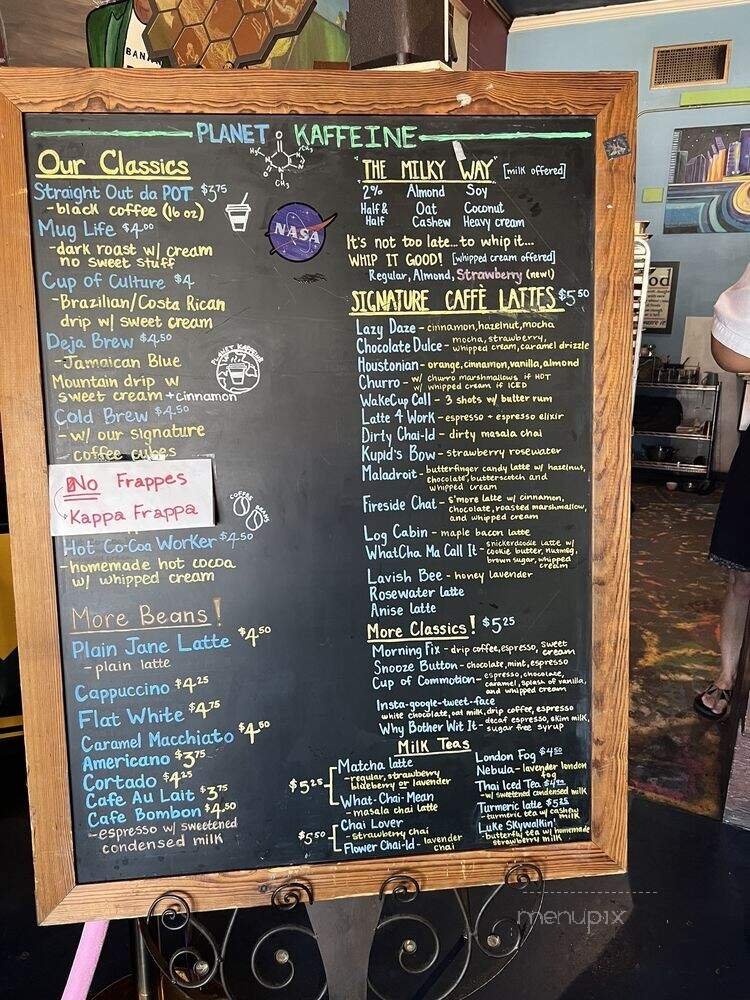 BANAN
PLANET KAFFEINE
H₃C
CH₃
CH₃
Our Classics
Straight Out da POT $3.75
- black coffee (16 oz)
Mug Life $4.00
- dark roast w/ cream
no sweet stuff
Cup of Culture $4
- Brazilian/Costa Rican
drip w/ sweet cream
Deja Brew $4.50
- Jamaican Blue
Mountain drip w
sweet cream + cinnamon
Cold Brew $4.50
- w/ our signature
coffee cubes
No Frappes
Kappa Frappa
Hot Co-Coa Worker $4.50
- homemade hot cocoa
w/ whipped cream
More Beans!
Plain Jane Latte $4.50
- plain latte
Cappuccino $4.25
Flat White $4.75
Caramel Macchiato $4.50
Americano $3.75
Cortado $4.25
Cafe Au Lait $3.75
Cafe Bombon $4.50
- espresso w/ sweetened
condensed milk
NASA
PLANET KAFFEINE
COFFEE BEANS
"THE MILKY WAY" [milk offered]
2% Almond Soy
Half & Half Oat Coconut
Cashew Heavy cream
It's not too late...to whip it...
WHIP IT GOOD! [whipped cream offered]
Regular, Almond, Strawberry (new!)
SIGNATURE CAFFÈ LATTES $5.50
Lazy Daze - cinnamon, hazelnut, mocha
Chocolate Dulce - mocha, strawberry,
whipped cream, caramel drizzle
Houstonian - orange, cinnamon, vanilla, almond
Churro - w/ churro marshmallows if HOT
w/ whipped cream if ICED
WakeCup Call - 3 shots w/ butter rum
Latte 4 Work - espresso + espresso elixir
Dirty Chai-ld - dirty masala chai
Kupid's Bow - strawberry rosewater
Maladroit - butterfinger candy latte w/ hazelnut,
chocolate, butterscotch and
whipped cream
Fireside Chat - s'more latte w/ cinnamon,
chocolate, roasted marshmallow,
and whipped cream
Log Cabin - maple bacon latte
WhatCha Ma Call It - snickerdoodle latte w/
cookie butter, nutmeg,
brown sugar, whipped
cream
Lavish Bee - honey lavender
Rosewater latte
Anise latte
More Classics! $5.25
Morning Fix - drip coffee, espresso, sweet
cream
Snooze Button - chocolate, mint, espresso
Cup of Commotion - espresso, chocolate,
caramel, splash of vanilla,
and whipped cream
Insta-google-tweet-face
white chocolate, oat milk, drip coffee, espresso
Why Bother Wit It - decaf espresso, skim milk,
sugar free syrup
Milk Teas
$5.25
Matcha latte
- regular, strawberry
blueberry or lavender
What-Chai-Mean
- masala chai latte
$5.50
Chai Lover
- strawberry chai
Flower Chai-ld - lavender
chai
London Fog $4.50
Nebula - lavender london
fog
Thai Iced Tea
- w/ sweetened condensed milk
Turmeric latte $5.25
- turmeric tea w/ cashew
milk
Luke Skywalkin'
- butterfly tea w/ homemade
strawberry milk
menupix